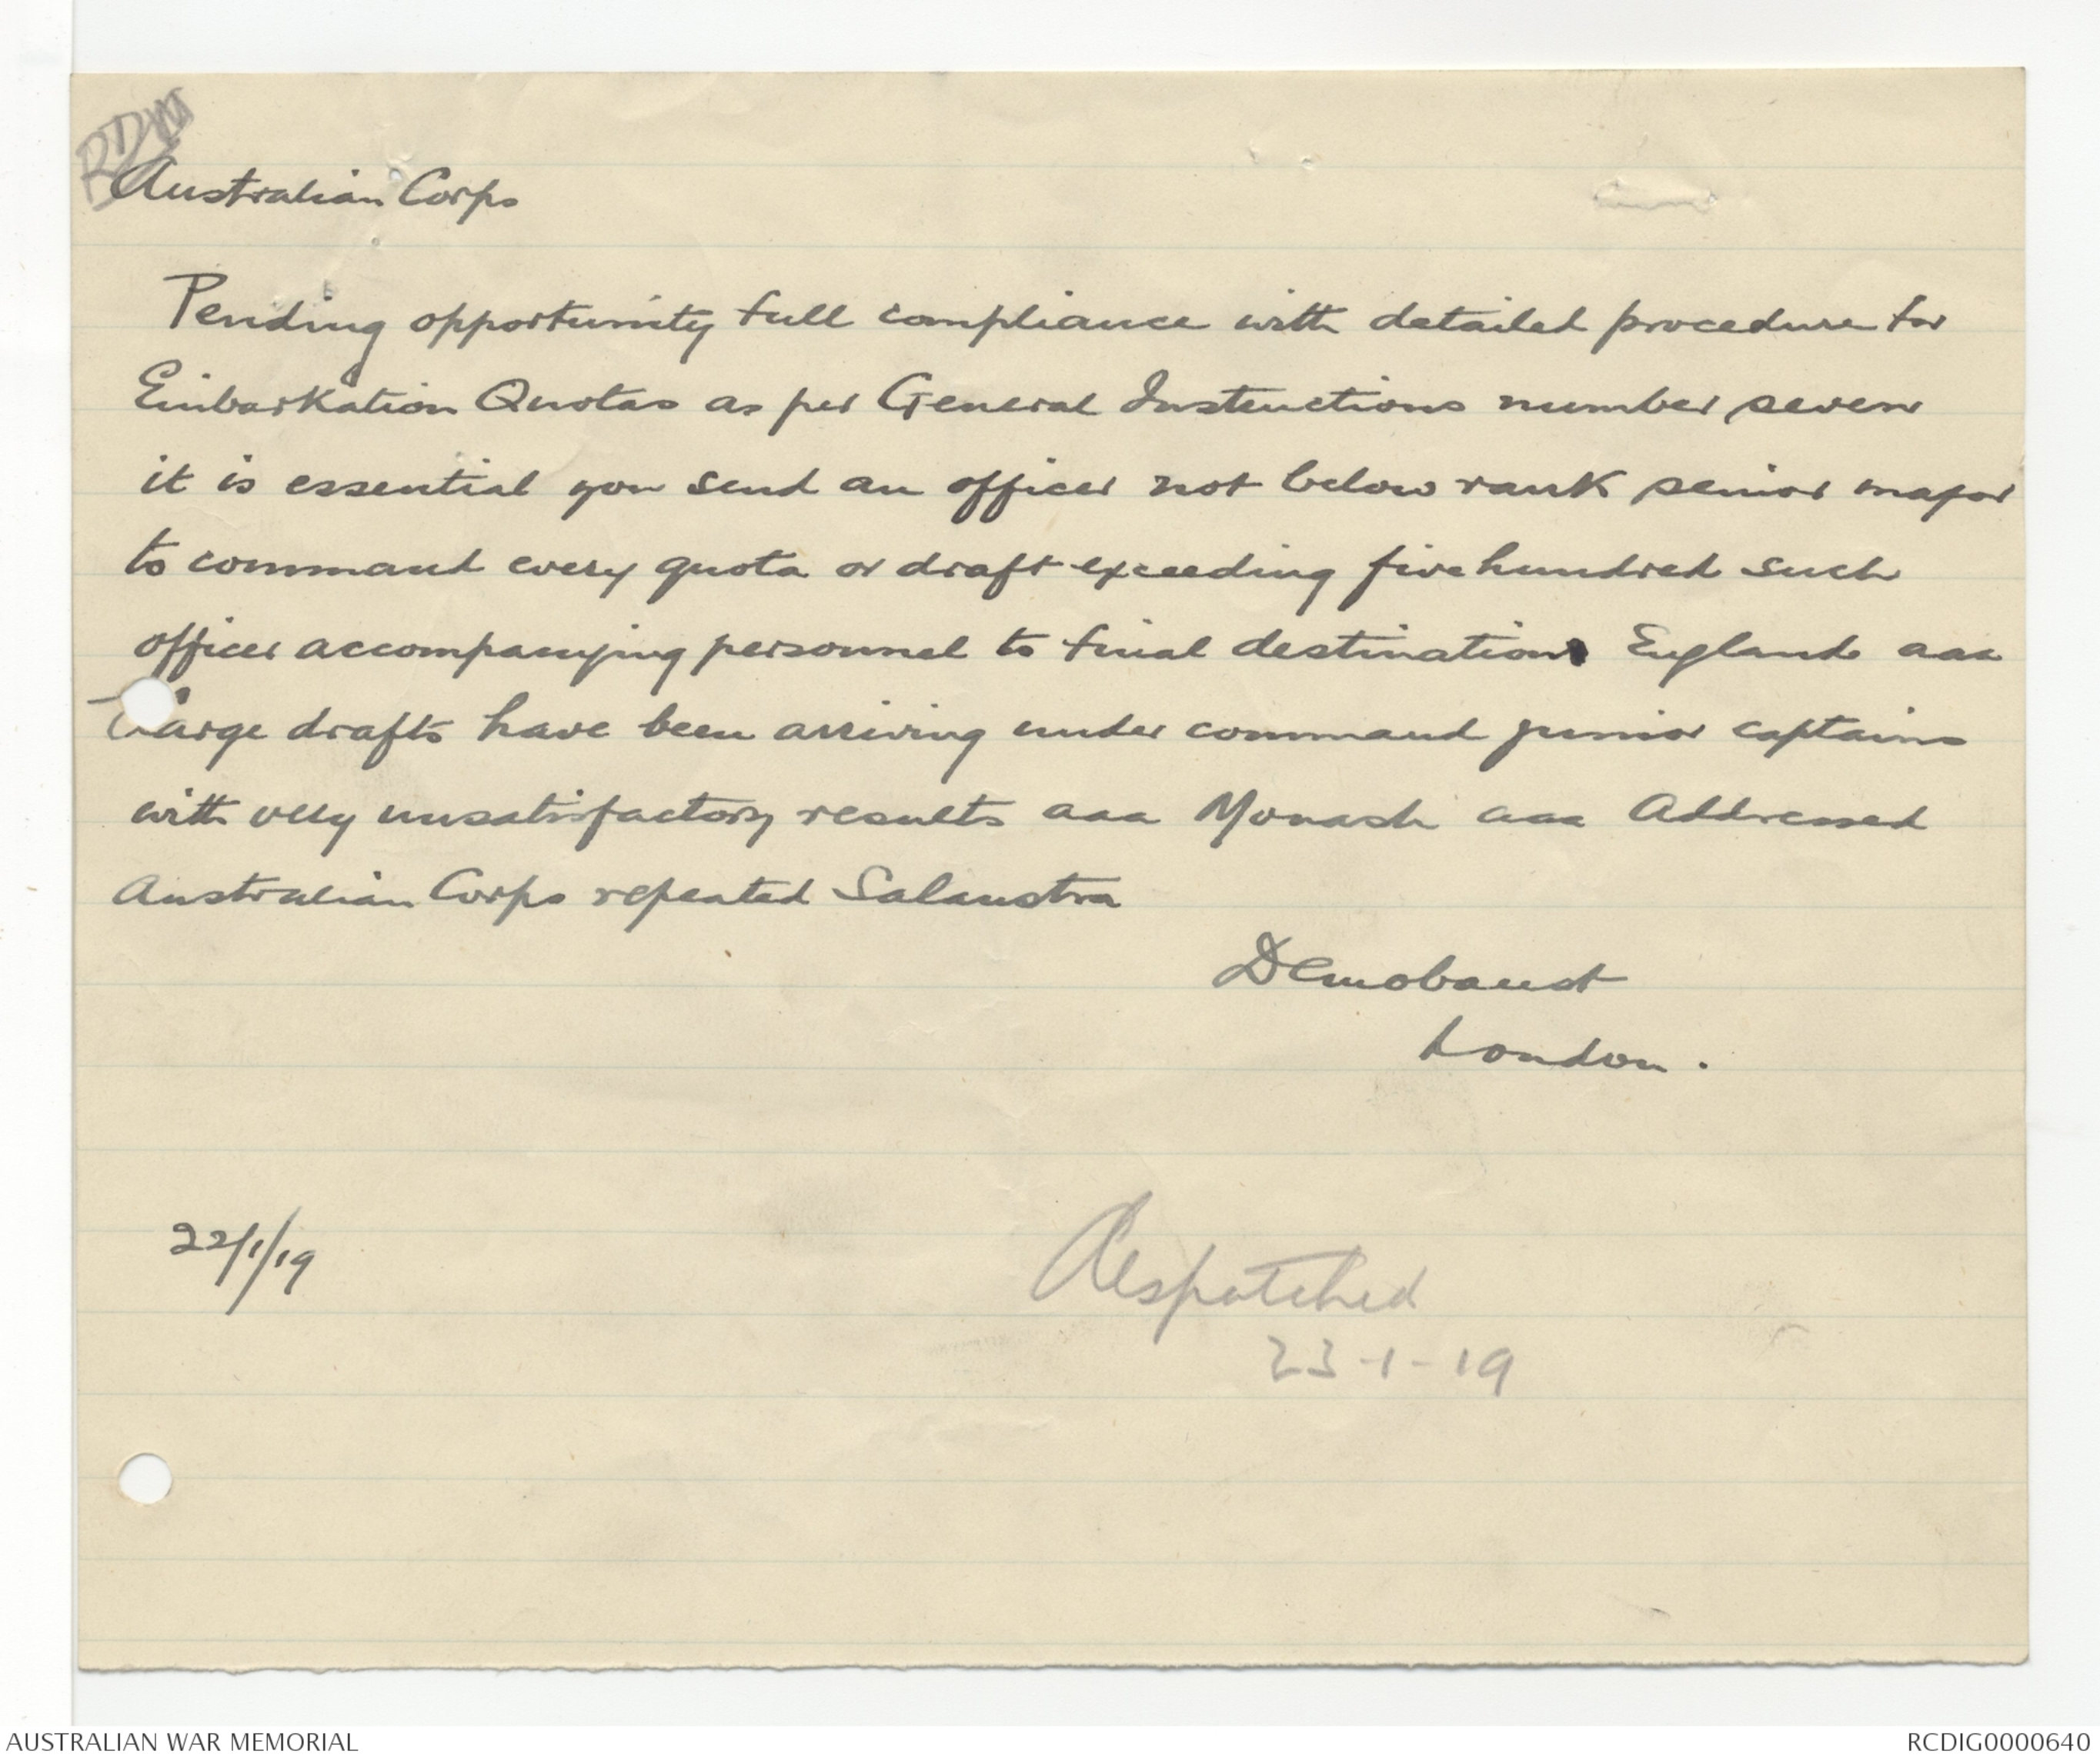 Australian Corps
Pending opportunity full compliance with detailed procedure for
Embarkation Quotas as per General Instructions number seven
it is essential you send an officer not below rank senior major
to command every quota or draft exceeding five hundred such
officer accompanying personnel to final destination England aaa
Large drafts have been arriving under command junior captains
with very unsatisfactory results aaa Monash aaa Addressed
Australian Corps repeated Salaustra
Demobaust
London.
22/1/19
Despatched
23-1-19
AUSTRALIAN WAR MEMORIAL
RCDIG0000640